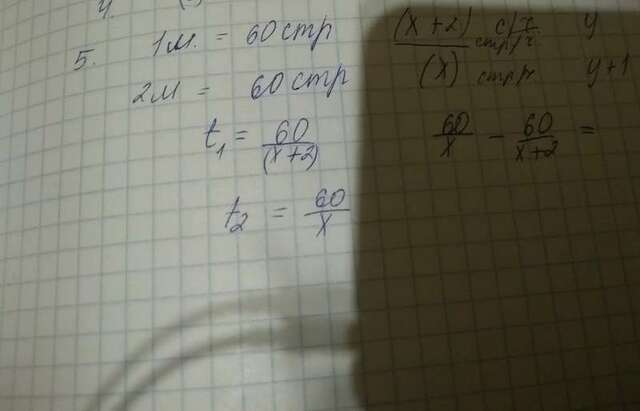 5. 1м. = 60 стр (x+2) стр/ч y
2м = 60 стр (x) стр y+1
t₁ = 60/(x+2) 60/x - 60/x+2 =
t₂ = 60/x